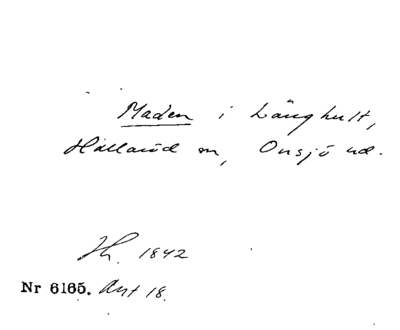 Maden i Långhult,
Hallaröd sn, Onsjö hd.
Hh. 1842
Nr 6165. Avt 18.